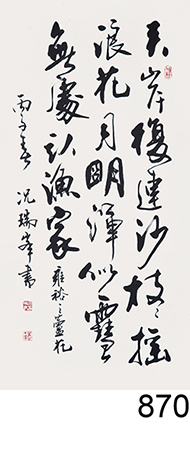 夹岸復連沙枝々摇
浪花月明渾似雪
無處认漁家 雍裕之蘆花
丙子春 况瑞峯書
870